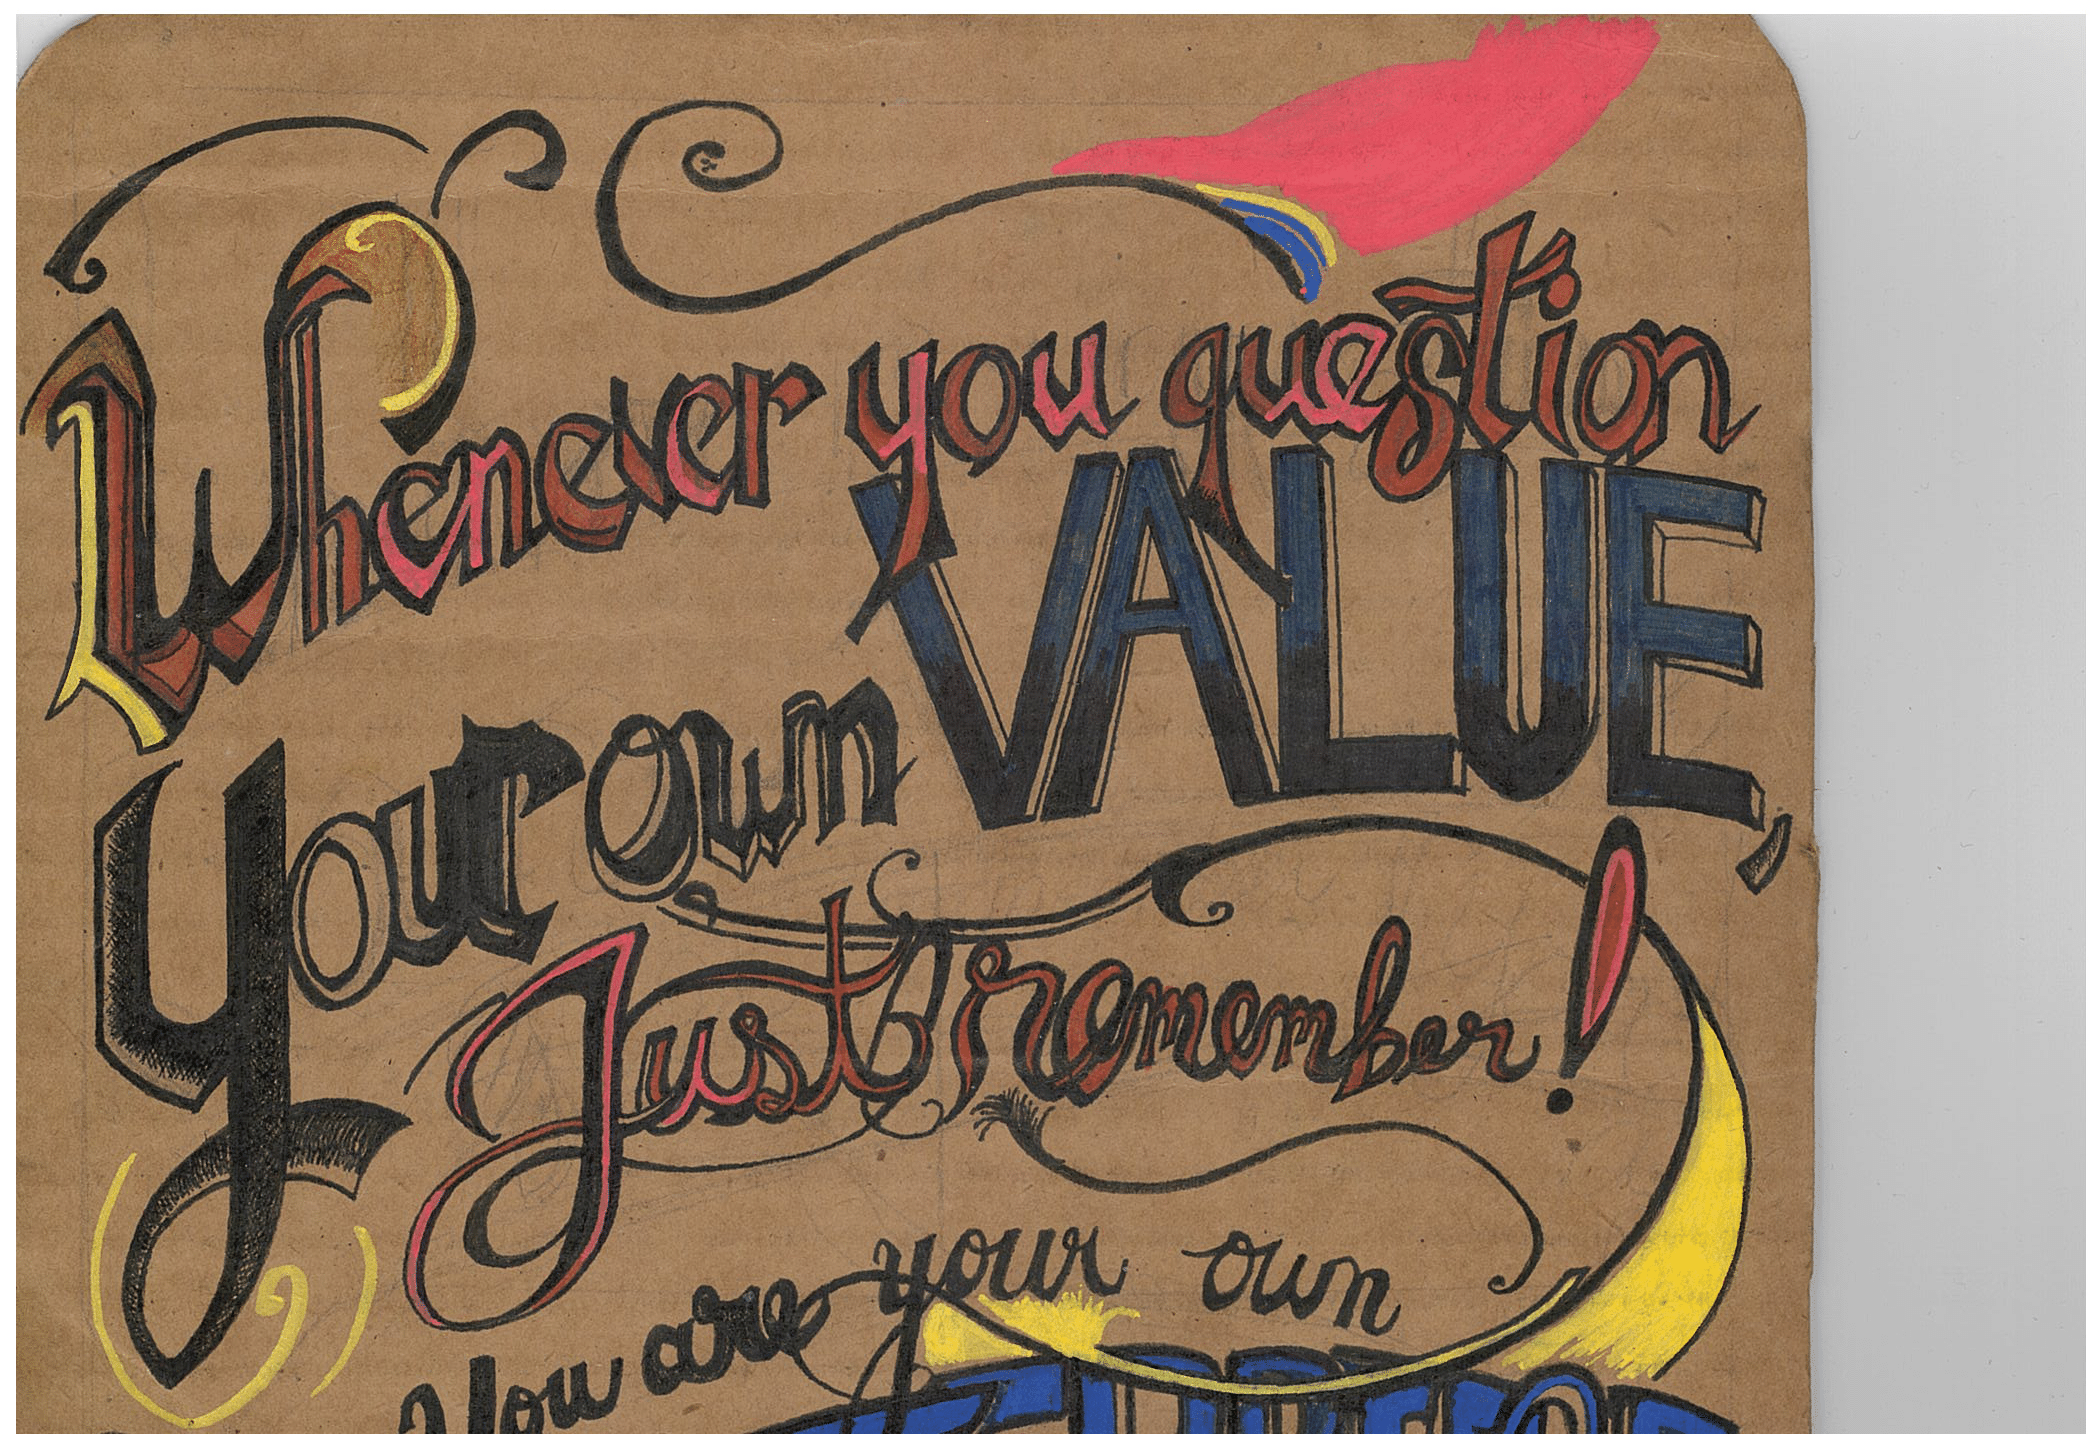 Whenever you question
your own VALUE,
Just remember!
You are your own